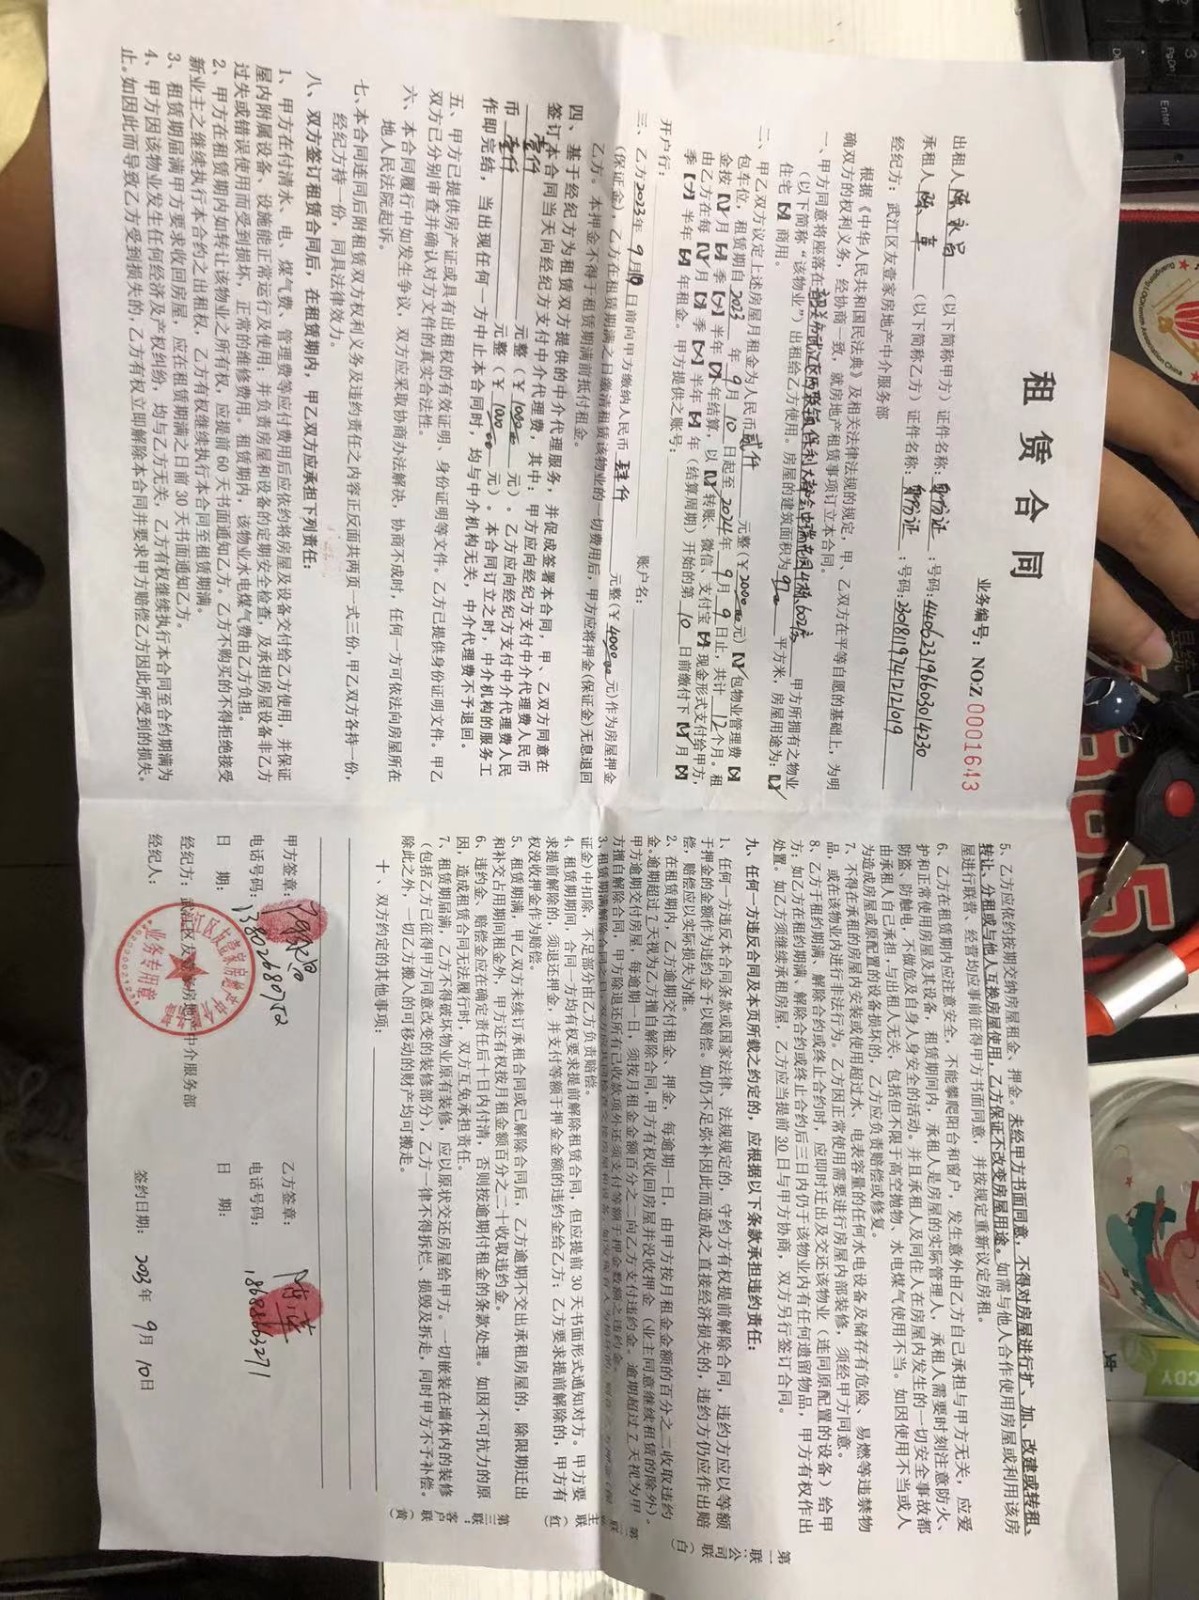 租赁合同
业务编号：NO:Z 0001643
出租人 陈永昌 （以下简称甲方）证件名称：身份证 ；号码：440623196603014230
承租人 陈革 （以下简称乙方）证件名称：身份证 ；号码：230181197412121019
经纪方：武江区友章家房地产中介服务部
根据《中华人民共和国民法典》及相关法律法规的规定，甲、乙双方在平等自愿的基础上，为明
确双方的权利义务，经协商一致，就房地产租赁事项订立本合同。
一、甲方同意将座落在韶关市武江区西联镇保利大都会中瑞花园4幢602房 甲方所拥有之物业
（以下简称“该物业”）出租给乙方使用。房屋的建筑面积为 97 平方米，房屋用途为：【√】
住宅【×】商用。
二、甲乙双方议定上述房屋月租金为人民币 贰仟 元整（￥2000.00元）【√】包物业管理费【×】
包车位，租赁期自 2023 年 9 月 10 日起至2024年 9 月 9 日止，共计 12 个月。租
金按【√】月【×】季【×】半年【×】年结算，以【√】转账、微信、支付宝【×】现金形式支付给甲方，
由乙方在每【√】月【×】季【×】半年【×】年（结算周期）开始的第 10 日前缴付下【√】月【×】
季【×】半年【×】年租金。甲方提供之账号：
开户行： 账户名：
三、乙方2023年 9月10日前向甲方缴纳人民币 肆仟 元整（￥4000.00元）作为房屋押金
（保证金），乙方在租赁期满之日缴清租赁该物业的一切费用后，甲方应将押金（保证金）无息退回
乙方。本押金不得于租赁期满前抵付租金。
四、基于经纪方为租赁双方提供的中介代理服务，并促成签署本合同，甲、乙双方同意在
签订本合同当天向经纪方支付中介代理费，其中：甲方应向经纪方支付中介代理费人民币
壹仟 元整（￥1000.00元）。乙方应向经纪方支付中介代理费人民
币 壹仟 元整（￥1000.00元）。本合同订立之时，中介机构的服务工
作即完结，当出现任何一方中止本合同时，均与中介机构无关，中介代理费不予退回。
五、甲方已提供房产证或具有出租权的有效证明、身份证明等文件。乙方已提供身份证明文件。甲乙
双方已分别审查并确认对方文件的真实合法性。
六、本合同履行中如发生争议，双方应采取协商办法解决，协商不成时，任何一方可依法向房屋所在
地人民法院起诉。
七、本合同连同后附租赁双方权利义务及违约责任之内容正反面共两页一式三份，甲乙双方各持一份，
经纪方持一份，同具法律效力。
八、双方签订租赁合同后，在租赁期内，甲乙双方应承担下列责任：
1、甲方在付清水、电、煤气费、管理费等应付费用后应依约将房屋及设备交付给乙方使用，并保证
屋内附属设备、设施能正常运行及使用；并负责房屋和设备的定期安全检查，及承担房屋设备非乙方
过失或错误使用而受到损坏，正常的维修费用。租赁期内，该物业水电煤气费由乙方负担。
2、甲方在租赁期内如转让该物业之所有权，应提前60天书面通知乙方。乙方不购买的不得拒绝接受
新业主之继续执行本合约之出租权，乙方有权继续执行本合同至租赁期满。
3、租赁期届满甲方要求收回房屋，应在租赁期满之日前30天书面通知乙方。
4、甲方因该物业发生任何经济及产权纠纷，均与乙方无关，乙方有权继续执行本合同至合约期满为
止。如因此而导致乙方受到损失的，乙方有权立即解除本合同并要求甲方赔偿乙方因此所受到的损失。
5、乙方应依约按期交纳房屋租金、押金。未经甲方书面同意，不得对房屋进行扩、加、改建或转租、
转让、分租或与他人互换房屋使用，乙方保证不改变房屋用途。如需与他人合作使用房屋或利用该房
屋进行联营、经营均应事前征得甲方书面同意，并按规定重新议定房租。
6、乙方在租赁期内应注意安全，不能攀爬阳台和窗户，发生意外由乙方自己承担与甲方无关，应爱
护和正常使用房屋及其设备，租赁期间内，承租人是房屋的实际管理人，承租人需要时刻注意防火、
防盗、防触电，不做危及自身人身安全的活动。并且承租人及同住人在房屋内发生的一切安全事故都
由承租人自己承担，与出租人无关，包括但不限于高空抛物、水电煤气使用不当。如因使用不当或人
为造成房屋或原配置的设备损坏的，乙方应负责赔偿或修复。
7、不得在承租的房屋内安装或使用超过水、电表容量的任何水电设备及储存有危险、易燃等违禁物
品，或在该物业内进行非法行为。乙方因正常使用需要进行房屋内部装修，须经甲方同意。
8、乙方于租约期满、解除合约或终止合约时，应即时迁出及交还该物业（连同原配置的设备）给甲
方；如乙方在租约期满、解除合约或终止合约后三日内仍于该物业内有任何遗留物品，甲方有权作出
处置。如乙方须继续承租房屋，乙方应当提前30日与甲方协商，双方另行签订合同。
九、任何一方违反合同及本页所载之约定的，应根据以下条款承担违约责任：
1、任何一方违反本合同条款或国家法律、法规规定的，守约方有权提前解除合同，违约方应以等额
于押金的金额作为违约金予以赔偿。如仍不足弥补因此而造成之直接经济损失的，违约方仍应作出赔
偿，赔偿应以实际损失为准。
2、在租赁期内，乙方逾期交付租金、押金，每逾期一日，由甲方按月租金金额的百分之二收取违约
金。逾期超过7天视为乙方擅自解除合同，甲方有权收回房屋并没收押金（业主同意继续租赁的除外）。
甲方逾期交付房屋，每逾期一日，须按月租金金额百分之二向乙方支付违约金。逾期超过7天视为甲
方擅自解除合同，甲方除退还所有已收款项外还须支付等额于押金数额之违约金。
3、租赁期满解除合同之日
证金）中扣除，不足部分由乙方负责赔偿。
4、租赁期间，合同一方均有权要求提前解除租赁合同，但应提前30天书面形式通知对方。甲方要
求提前解除的，须退还押金，并支付等额于押金金额的违约金给乙方；乙方要求提前解除的，甲方有
权没收押金作为赔偿。
5、租赁期满，甲乙双方未续订承租合同或已解除合同后，乙方逾期不交出承租房屋的，除限期迁出
和补交占用期间租金外，甲方还有权按月租金额百分之二十收取违约金。
6、违约金、赔偿金应在确定责任后十日内付清，否则按逾期付租金的条款处理。如因不可抗力的原
因，造成租赁合同无法履行时，双方互免承担责任。
7、租赁期届满，乙方不得破坏物业原有装修，应以原状交还房屋给甲方。一切嵌装在墙体内的装修
（包括乙方已征得甲方同意改变的装修部分），乙方一律不得拆烂、损毁及拆走，同时甲方不予补偿。
除此之外，一切乙方搬入的可移动的财产均可搬走。
十、双方约定的其他事项：
甲方签章： 乙方签章：
电话号码：13802660712 电话号码：18688603271
日 期： 日 期：
经纪方：武江区友章家房地产中介服务部
经纪人： 签约日期：2023年 9月 10日
业务专用章
第一联：公司联（白）
第二联：业主联（红）
第三联：客户联（黄）
Enter
PgDn